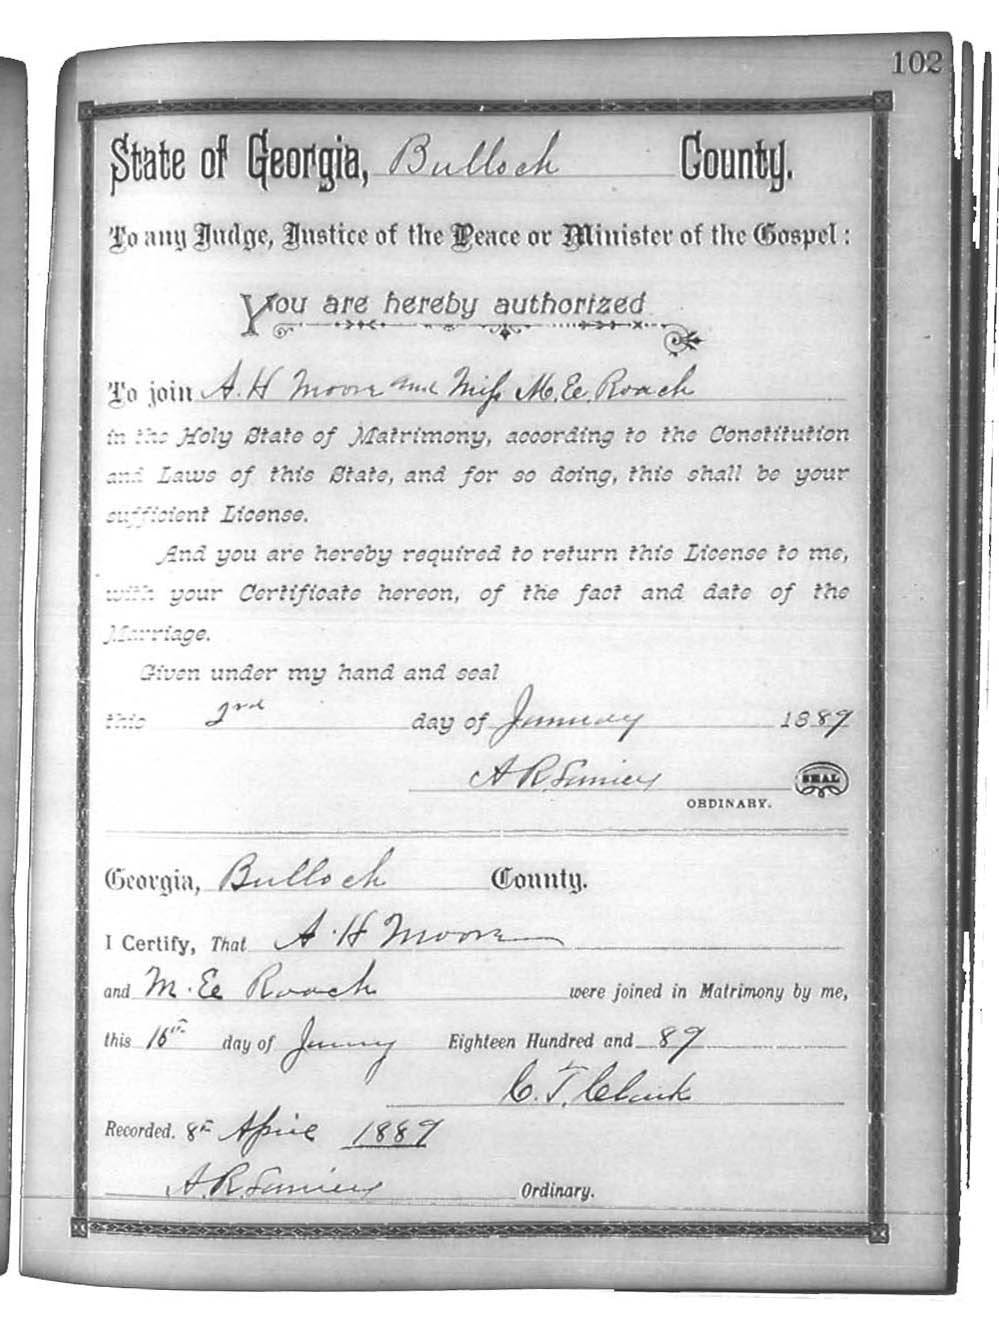 102
State of Georgia, Bulloch County.
To any Judge, Justice of the Peace or Minister of the Gospel:
You are hereby authorized
To join A. H Moore and Miss M. E. Roach
in the Holy State of Matrimony, according to the Constitution
and Laws of this State, and for so doing, this shall be your
sufficient License.
And you are hereby required to return this License to me,
with your Certificate hereon, of the fact and date of the
Marriage.
Given under my hand and seal
this 2nd day of January 1889
A R Lanier SEAL
ORDINARY.
Georgia, Bulloch County.
I Certify, That A. H Moore
and M. E Roach were joined in Matrimony by me,
this 16th day of Jany Eighteen Hundred and 89
C. T. Clark
Recorded. 8th April 1889
A. R. Lanier Ordinary.